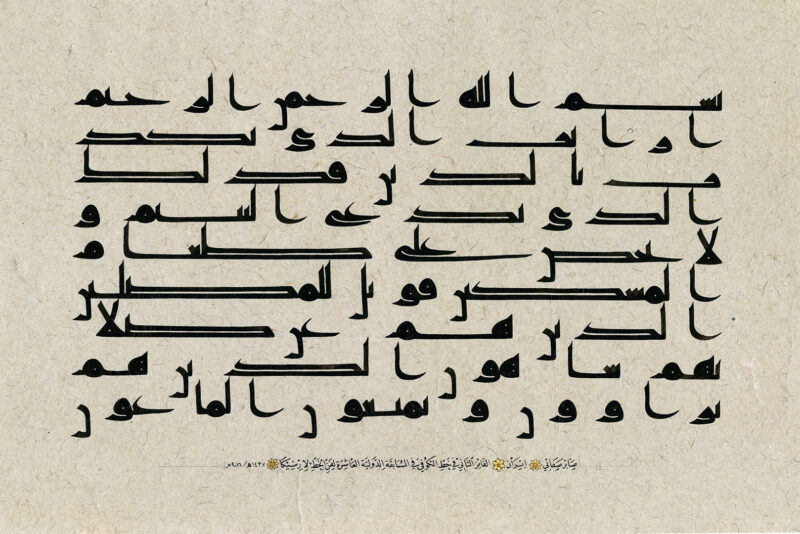 بسم الله الرحمن الرحيم
ارايت الذي يكذ
ب بالدين فذلك
الذي يدع اليتيم و
لا يحض على طعام
المسكين فويل للمصلين
الذين هم عن صلا
تهم ساهون الذين هم
يراوون ويمنعون الماعون
صابر صفائي إيران الفائز الثاني في خط الكوفي في المسابقة الدولية العاشرة لفن الخط لإرسيكا ١٤٣٧هـ/٢٠١٦م